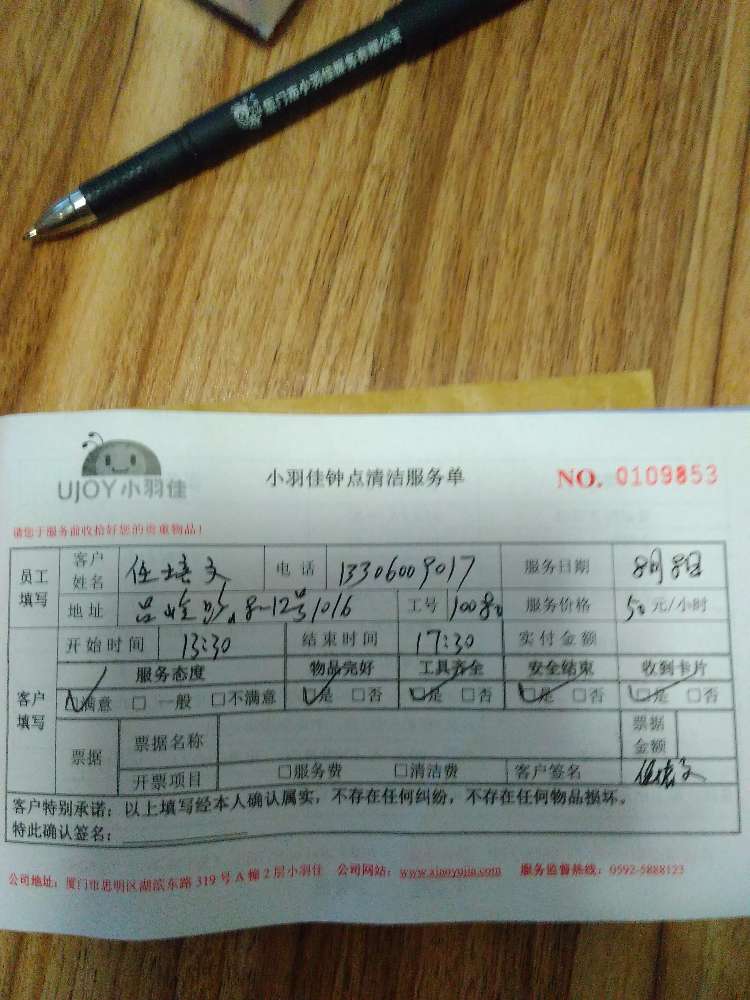 厦门市小羽佳服务有限公司
UJOY小羽佳
小羽佳钟点清洁服务单
NO. 0109853
请您于服务前收拾好您的贵重物品!
员工填写 客户姓名 任培文 电话 13306009017 服务日期 8月8日
地址 吕岭路 8-12号1016 工号 1008 服务价格 50元/小时
开始时间 13:30 结束时间 17:30 实付金额
客户填写 服务态度 物品完好 工具齐全 安全结束 收到卡片
满意 □ 一般 □不满意 □是 □否 □是 □否 □是 □否 □是 □否
票据 票据名称 票据金额
开票项目 □服务费 □清洁费 客户签名 任培文
客户特别承诺:以上填写经本人确认属实,不存在任何纠纷,不存在任何物品损坏。
特此确认签名:
公司地址:厦门市思明区湖滨东路 319 号 A 幢 2 层小羽佳 公司网站: 服务监督热线:0592-5888123